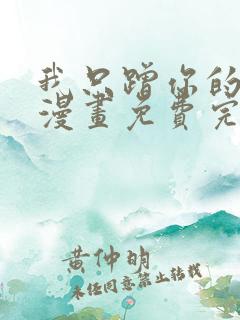 我只蹭你的
漫畫免費完
黄仲明
未经同意禁止转载